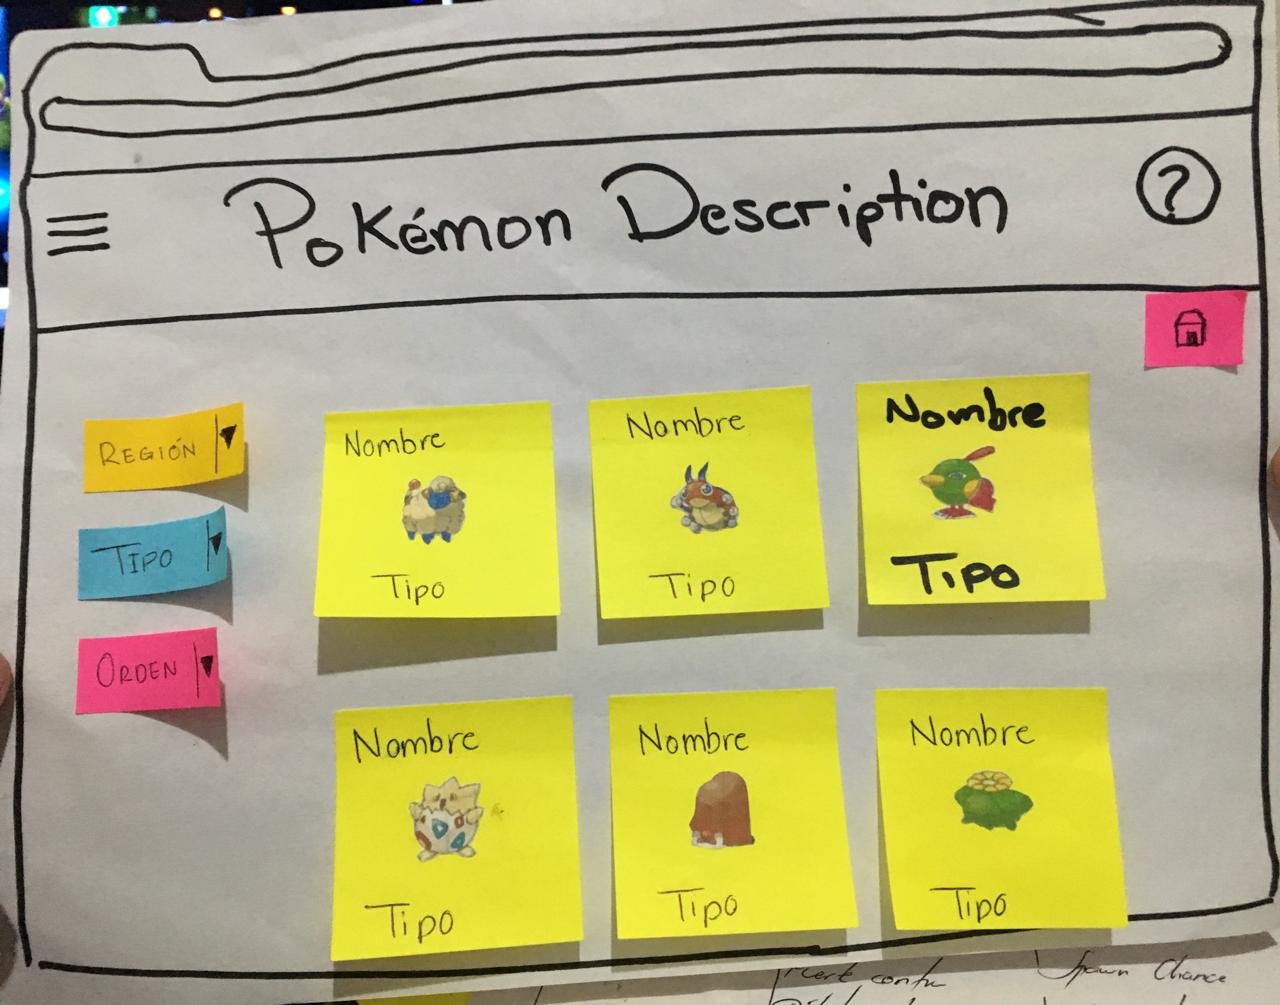 Pokémon Description
?
REGIÓN
TIPO
ORDEN
Nombre
Tipo
Nombre
Tipo
Nombre
Tipo
Nombre
Tipo
Nombre
Tipo
Nombre
Tipo
Spawn Chance